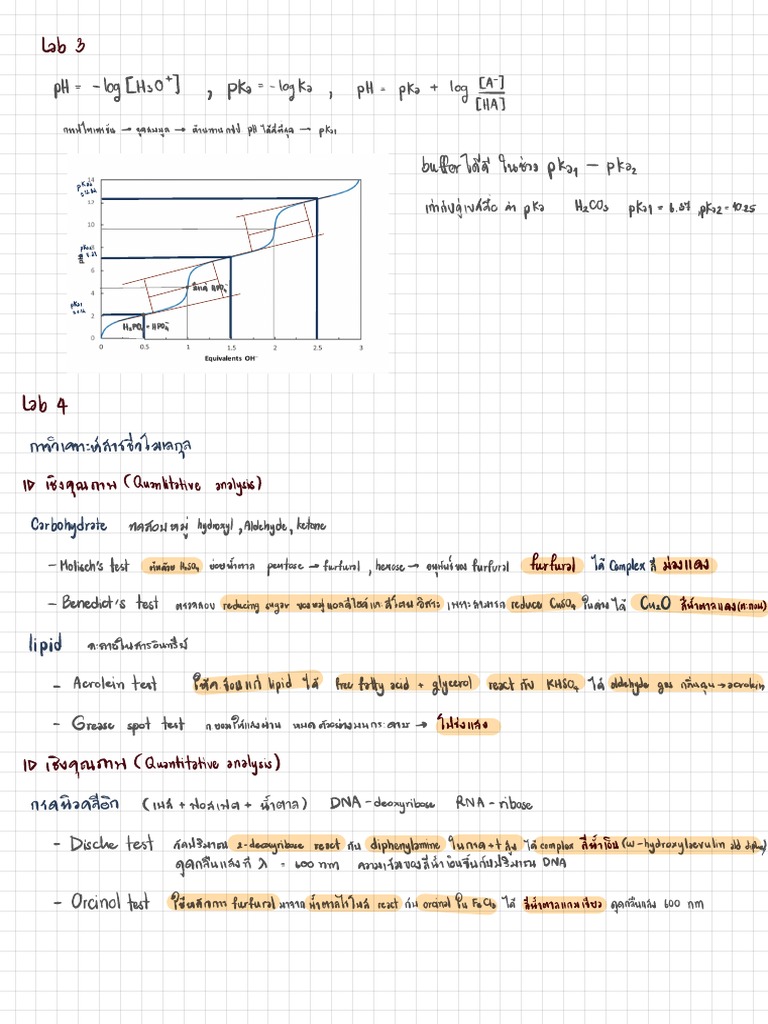 Lab 3
pH = -log [H₃O⁺] , pKa = -log Ka , pH = pKa + log [A⁻]/[HA]
การไทเทรชัน → จุดสมมูล → ต้านทานกรป pH ได้ดีที่สุด → pKa₁
buffer ได้ดี ในช่วง pKa₁ – pKa₂
pKa H₂CO₃ pKa1 = 6.37, pKa2 = 10.25
14
12
10
6
4
2
0
pH
H₂PO₄⁻ = HPO₄
0 0.5 1 1.5 2 2.5 3
Equivalents OH⁻
Lab 4
การวิเคราะห์สารชีวโมเลกุล
1) เชิงคุณภาพ (Quantitative analysis)
Carbohydrate ทดสอบหมู่ hydroxyl, Aldehyde, ketone
- Molisch's test H₂SO₄ ย่อยน้ำตาล pentose → furfural, hexose → อนุพันธ์ของ furfural furfural ได้ Complex สี ม่วงแดง
- Benedict's test ตรวจสอบ reducing sugar ของหมู่แอลดีไฮด์และคีโตนอิสระ เพราะสามารถ reduce CuSO₄ ในด่างได้ Cu₂O สีน้ำตาลแดง (ตะกอน)
lipid ละลายในสารอินทรีย์
- Acrolein test ให้ความร้อนแก่ lipid ได้ free fatty acid + glycerol react กับ KHSO₄ ได้ aldehyde gas กลิ่นฉุน → acrolein
- Grease spot test ยอมให้แสงผ่าน หยดตัวอย่างบนกระดาษ → โปร่งแสง
1) เชิงคุณภาพ (Quantitative analysis)
กรดนิวคลีอิก (เบส + ฟอสเฟต + น้ำตาล) DNA - deoxyribose RNA - ribose
- Dische test วัดปริมาณ 2-deoxyribose react กับ diphenylamine ในกรด + T สูง ได้ complex สีน้ำเงิน (ω-hydroxylaevulin
ดูดกลืนแสงที่ λ = 600 nm ความเข้มของสีน้ำเงินขึ้นกับปริมาณ DNA
- Orcinol test ใช้หลักการ furfural มาจาก น้ำตาลไรโบส react กับ orcinol ใน FeCl₃ ได้ สีน้ำตาลแกมเขียว ดูดกลืนแสง 600 nm